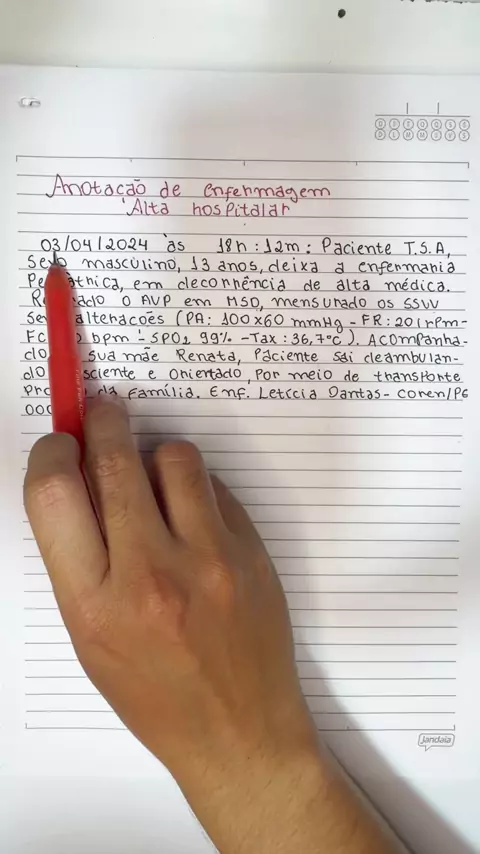 Anotação de enfermagem
Alta hospitalar
03/04/2024 às 18h:12m: Paciente T.S.A,
Sexo masculino, 13 anos, deixa a enfermaria
em decorrência de alta médica.
o AVP em MSD, mensurado os SSVV
alterações (PA: 100x60 mmHg - FR: 20irpm-
bpm - SPO2 99% - Tax: 36,7°C). Acompanha-
sua mãe Renata, Paciente sai deambulan-
e orientado, por meio de transporte
da família. Enf. Letícia Dantas - Coren/PE
000
D S T Q Q S S
D L M M J V S
jandaia